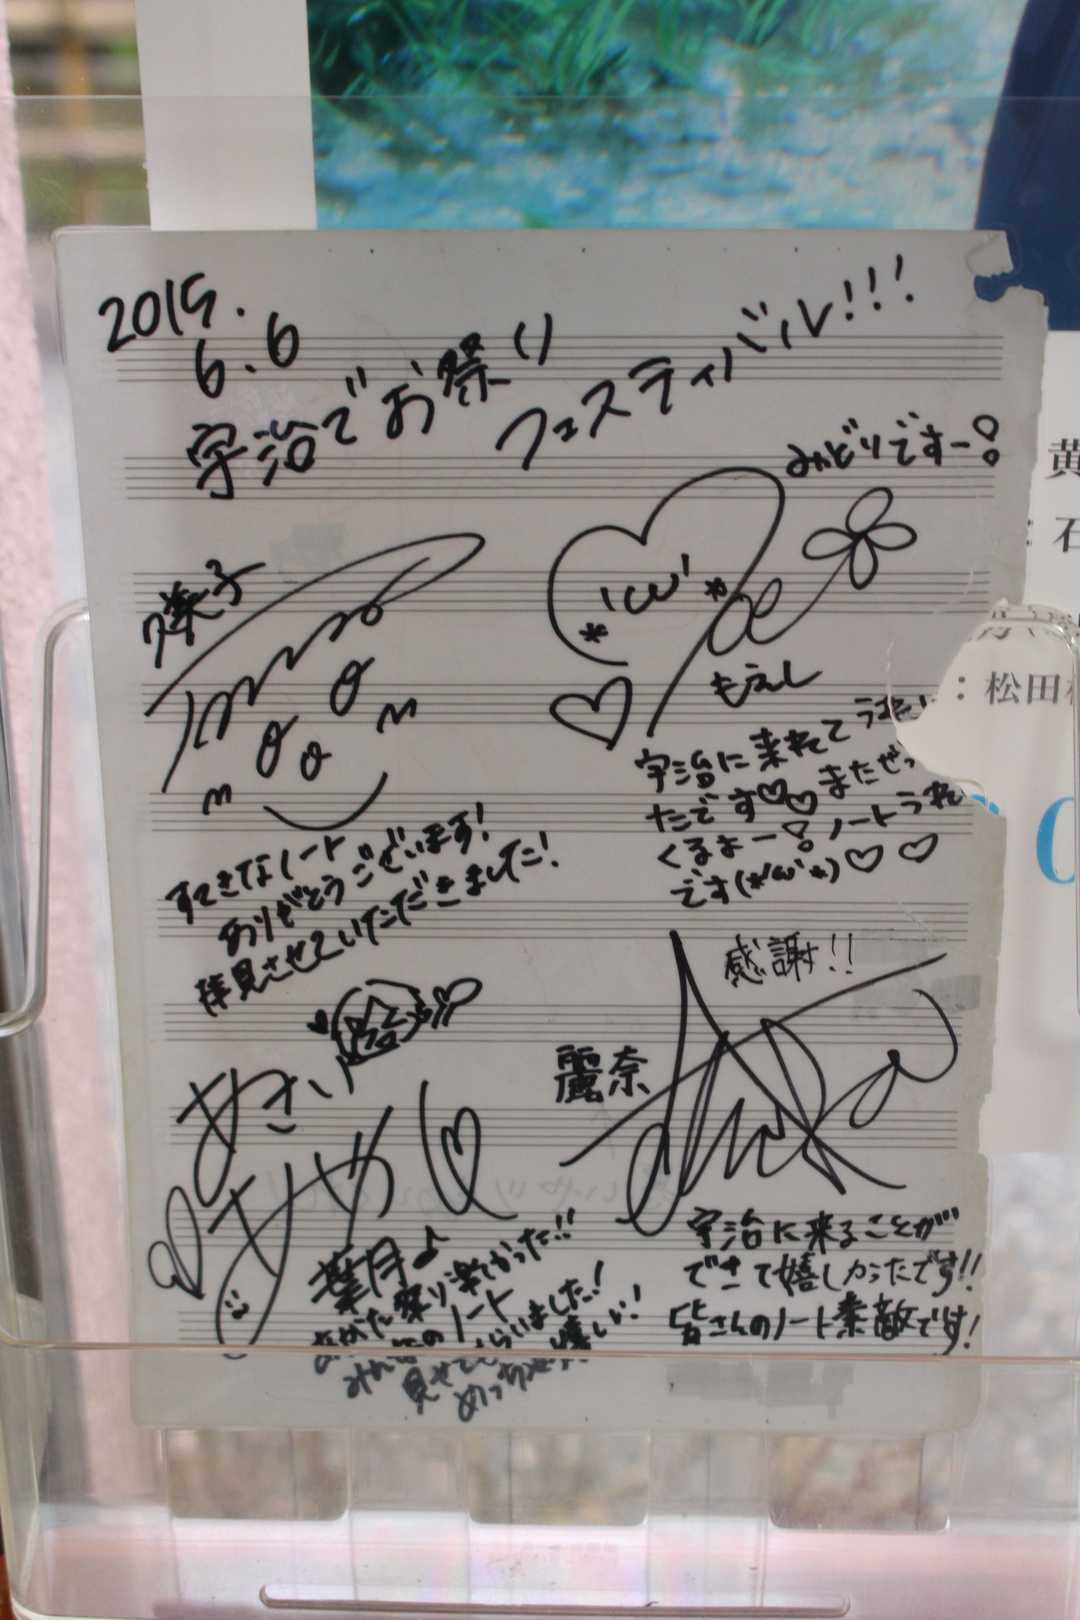 2015.
6.6
宇治でお祭り
フェスティバル!!!
久美子
すてきなノート
ありがとうございます!
拝見させていただきました!
みどりですー!
もえし
宇治に来れてうれし
たです♡♡またぜっ
くるよー!ノートうれ
です(*'ω'*)♡♡
感謝!!
麗奈
宇治に来ることが
できて嬉しかったです!!
皆さんのノート素敵です!
あさい
あやか
葉月♪
あがた祭り楽しかった!!
みんなのノート
見せてもらいました!
めっちゃ嬉しい!
黄
石
:松田